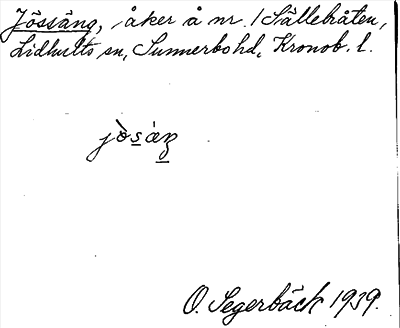 Jössäng, åker å nr. 1 Sällebråten,
Lidhults sn, Sunnerbo hd, Kronob. l.
O. Segerbäck 1939.